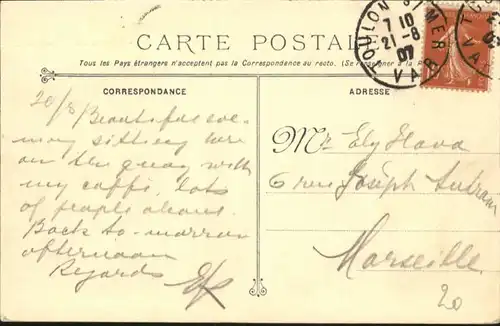 CARTE POSTALE
Tous les Pays étrangers n'acceptent pas la Correspondance au recto. (Se renseigner à la P
CORRESPONDANCE
20/8 Beautiful eve-
ning sitting here
on the quay with
my caffe, lots
of people about.
Back to-morrow
afternoon
Regards
ADRESSE
Mr. Ely Hava
6 rue Joseph Autran
Marseille
20
TOULON S/MER
7 10
21-8
07
VAR